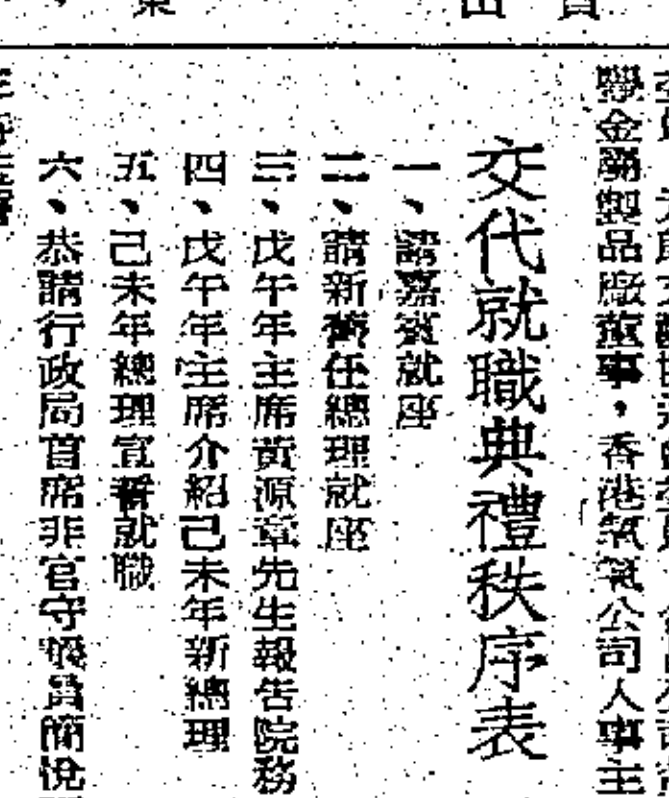 學金屬製品廠董事,香港氧氣公司人事主
交代就職典禮秩序表
一、請嘉賓就座
二、請新舊任總理就座
三、戊午年主席黃源章先生報告院務
四、戊午年主席介紹己未年新總理
五、己未年總理宣誓就職
六、恭請行政局首席非官守議員簡悅